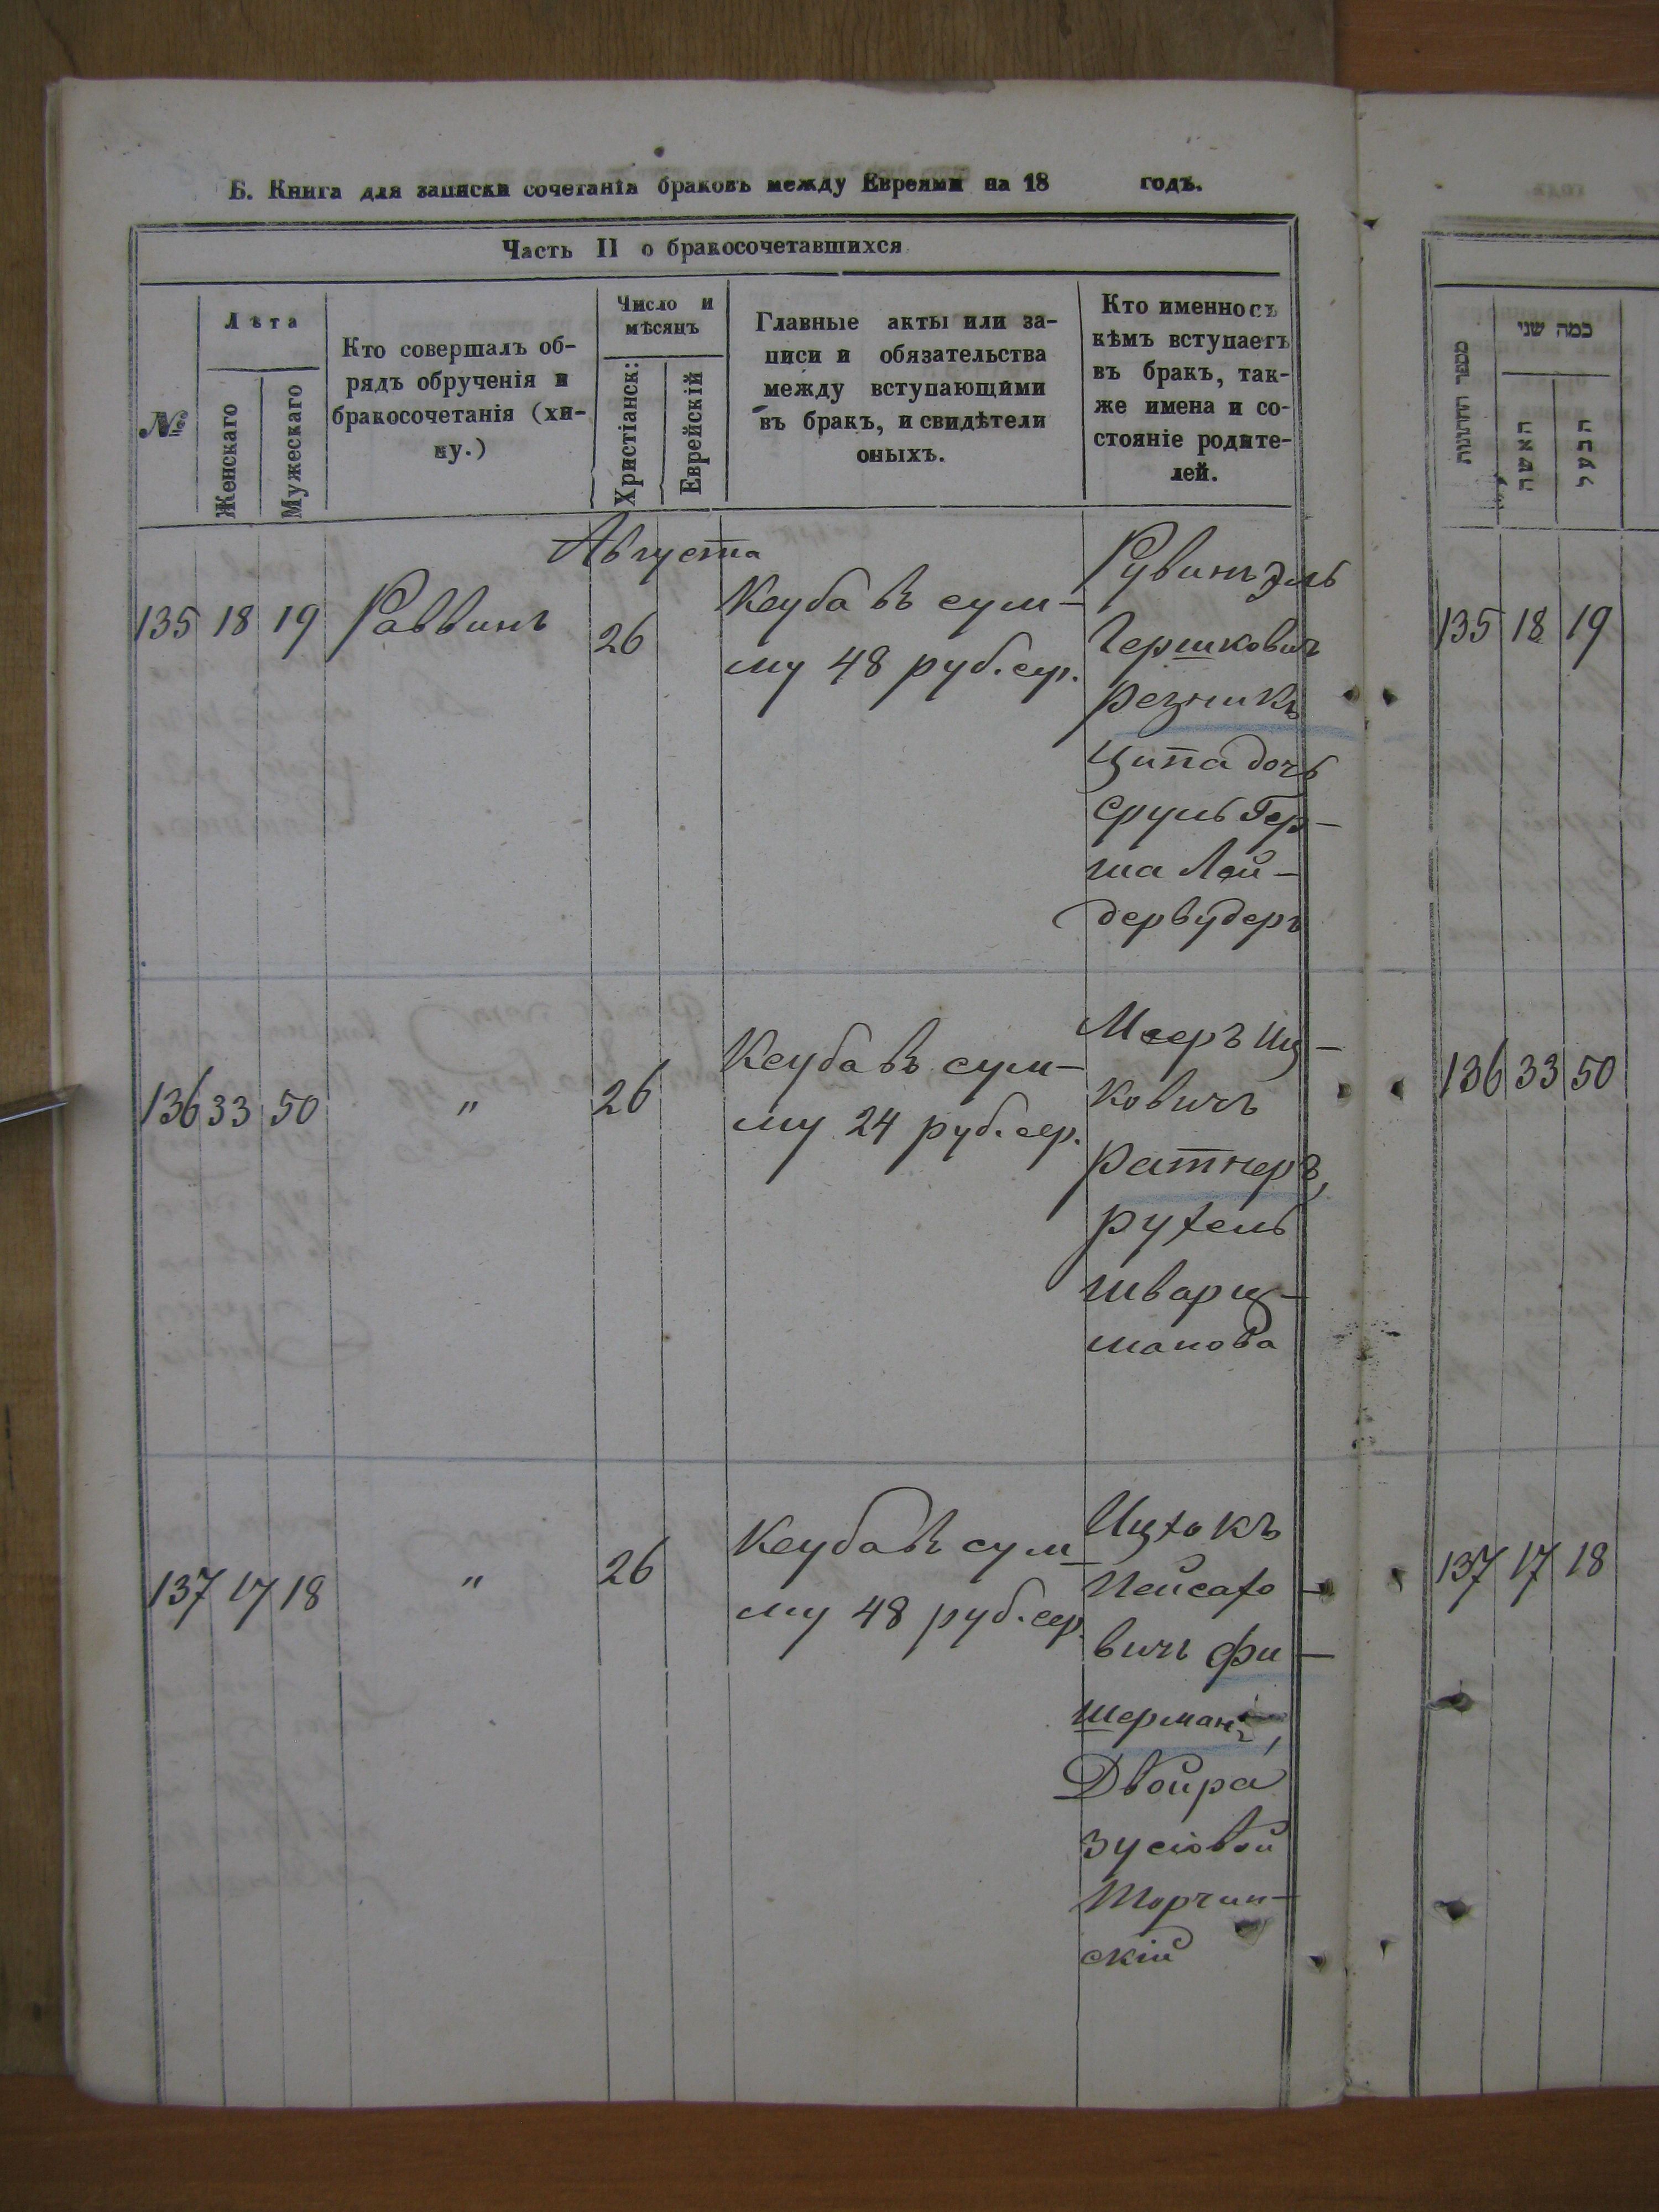 Б. Книга для записки сочетанія браковъ между Евреями на 18 годъ.
Часть II о бракосочетавшихся
№
Лѣта
Женскаго
Мужескаго
Кто совершалъ об-
рядъ обрученія и
бракосочетанія (хи-
пу.)
Число и
мѣсяцъ
Христіанск:
Еврейскій
Главные акты или за-
писи и обязательства
между вступающими
въ бракъ, и свидѣтели
оныхъ.
Кто именно съ
кѣмъ вступаетъ
въ бракъ, так-
же имена и со-
стояніе родите-
лей.
Августа
135 18 19 Раввинъ 26
Ксуба въ сум-
му 48 руб. сер.
Рувинъ Эль
Гершковичъ
Резникъ
Ципа дочь
Сруль Гер-
ша Лей-
дервудеръ
136 33 50 " 26
Ксуба въ сум-
му 24 руб. сер.
Мееръ Иц-
ковичъ
Ратнеръ,
Рухель
Шварц-
манова
137 17 18 " 26
Ксуба въ сум-
му 48 руб. сер.
Ицхокъ
Пейсахо
вичъ Фи-
шерманъ,
Двойра
Зусіовой
Торчин-
скій
מספר החתונות
כמה שני
האשה
הבעל
135 18 19
136 33 50
137 17 18